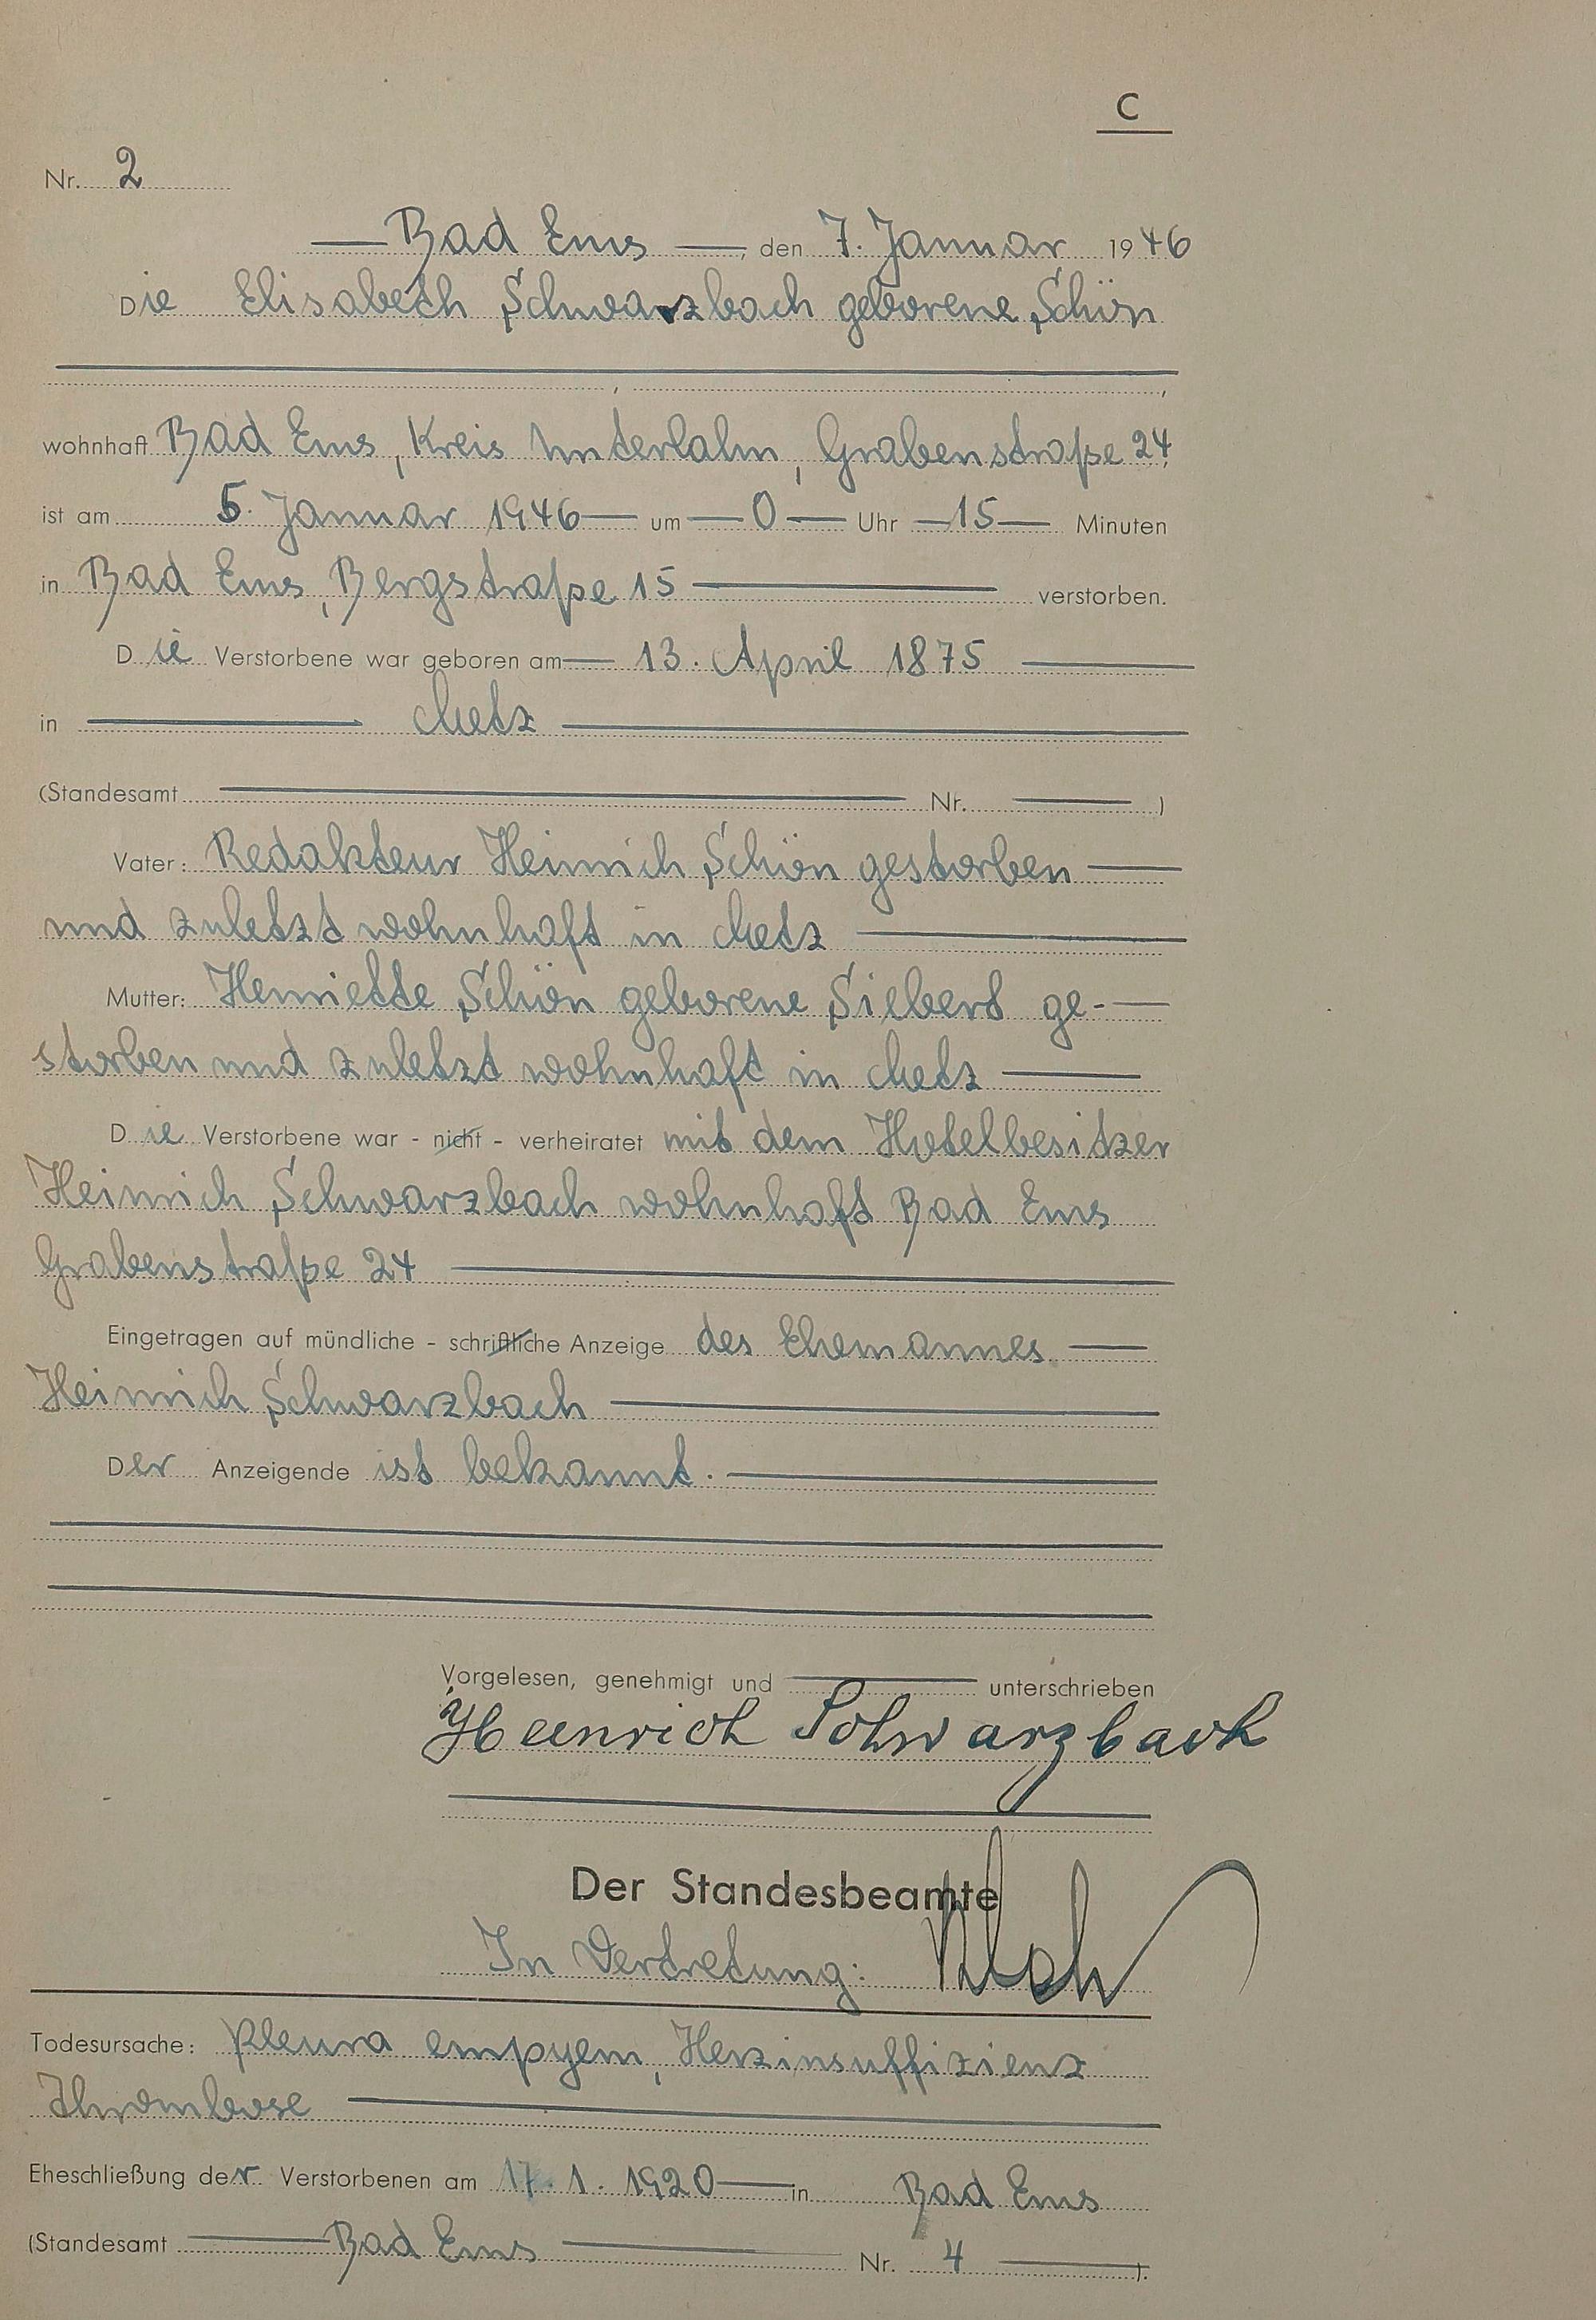 C
Nr. 2
Bad Ems, den 7. Januar 1946
Die Elisabeth Schwarzbach geborene Schön
wohnhaft Bad Ems, Kreis Unterlahn, Grabenstraße 24,
ist am 5. Januar 1946 um 0 Uhr 15 Minuten
in Bad Ems, Bergstraße 15 verstorben.
Die Verstorbene war geboren am 13. April 1875
in Metz
(Standesamt Nr. )
Vater: Redakteur Heinrich Schön gestorben
und zuletzt wohnhaft in Metz
Mutter: Henriette Schön geborene Siebert ge-
storben und zuletzt wohnhaft in Metz
Die Verstorbene war - nicht - verheiratet mit dem Hotelbesitzer
Heinrich Schwarzbach wohnhaft Bad Ems
Grabenstraße 24
Eingetragen auf mündliche - schriftliche Anzeige des Ehemannes
Heinrich Schwarzbach
Der Anzeigende ist bekannt.
Vorgelesen, genehmigt und unterschrieben
Heinrich Schwarzbach
Der Standesbeamte
In Vertretung:
Todesursache: Pleura empyem, Herzinsuffizienz
Thrombose
Eheschließung der Verstorbenen am 17. 1. 1920 in Bad Ems
(Standesamt Bad Ems Nr. 4 ).